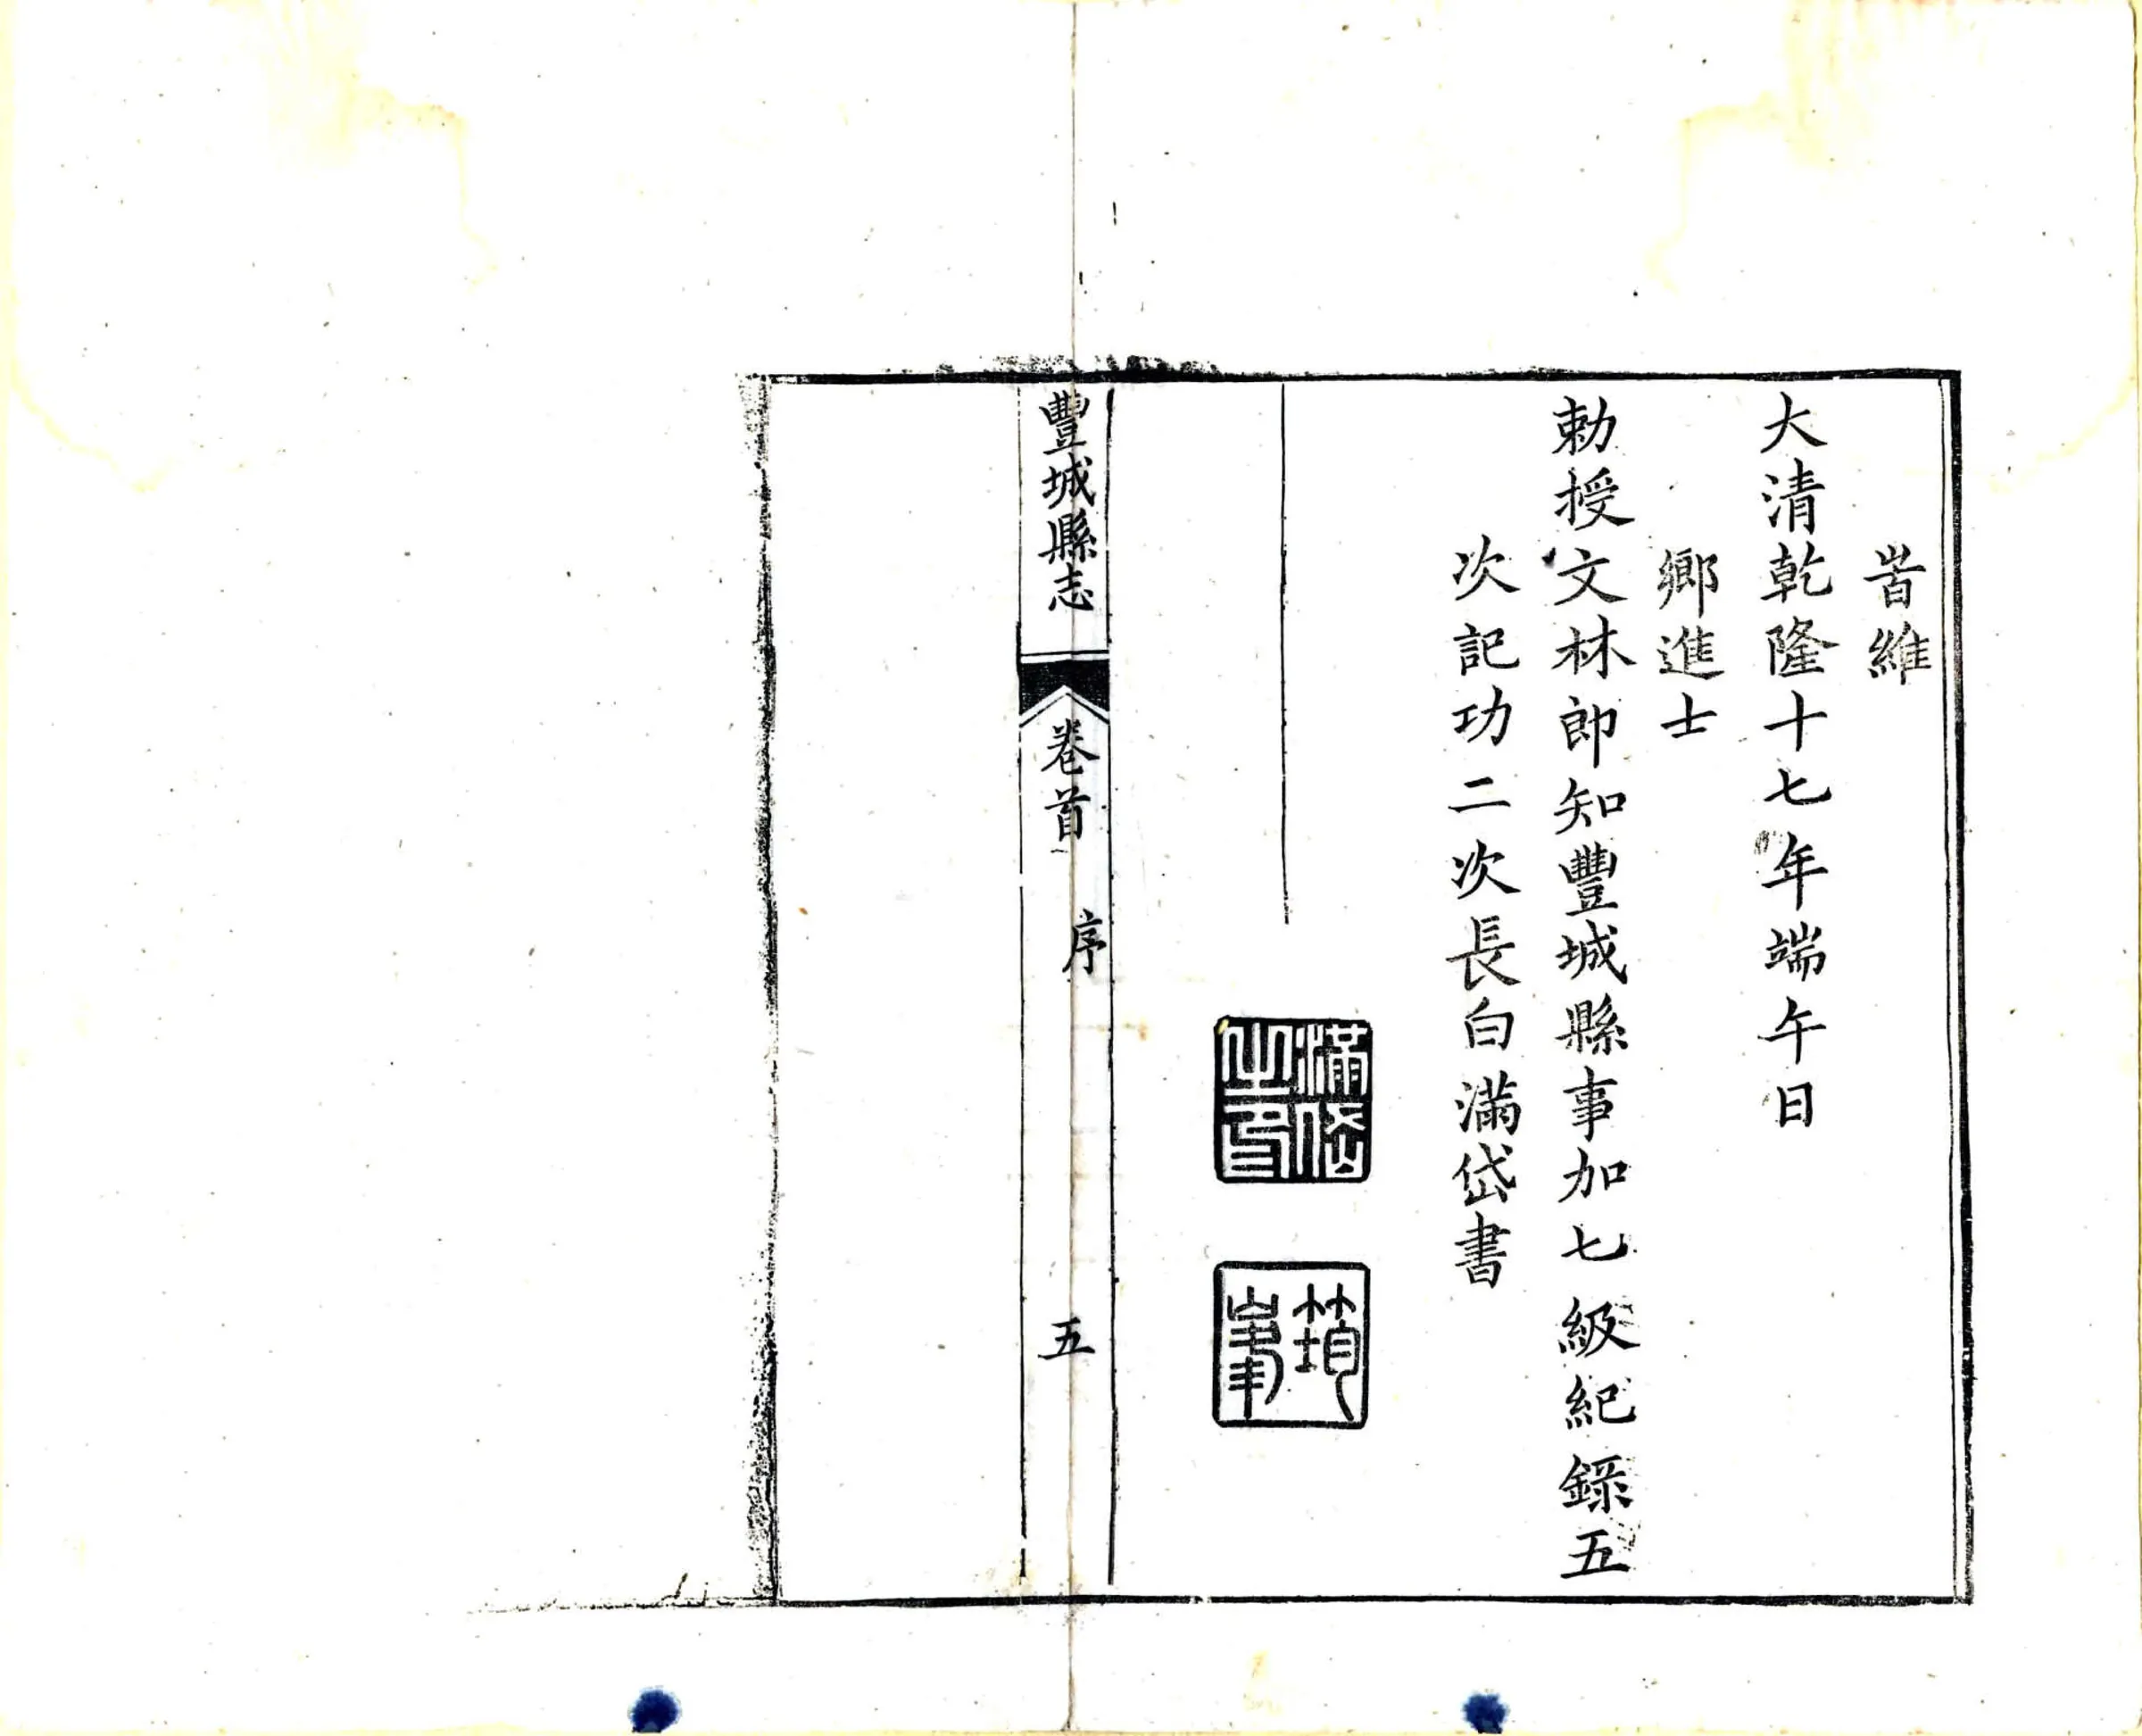 旹維
大清乾隆十七年端午日
鄉進士
勅授文林郎知豐城縣事加七級紀錄五
次記功二次長白滿岱書
滿岱之印
筠峯
豐城縣志 卷首 序 五